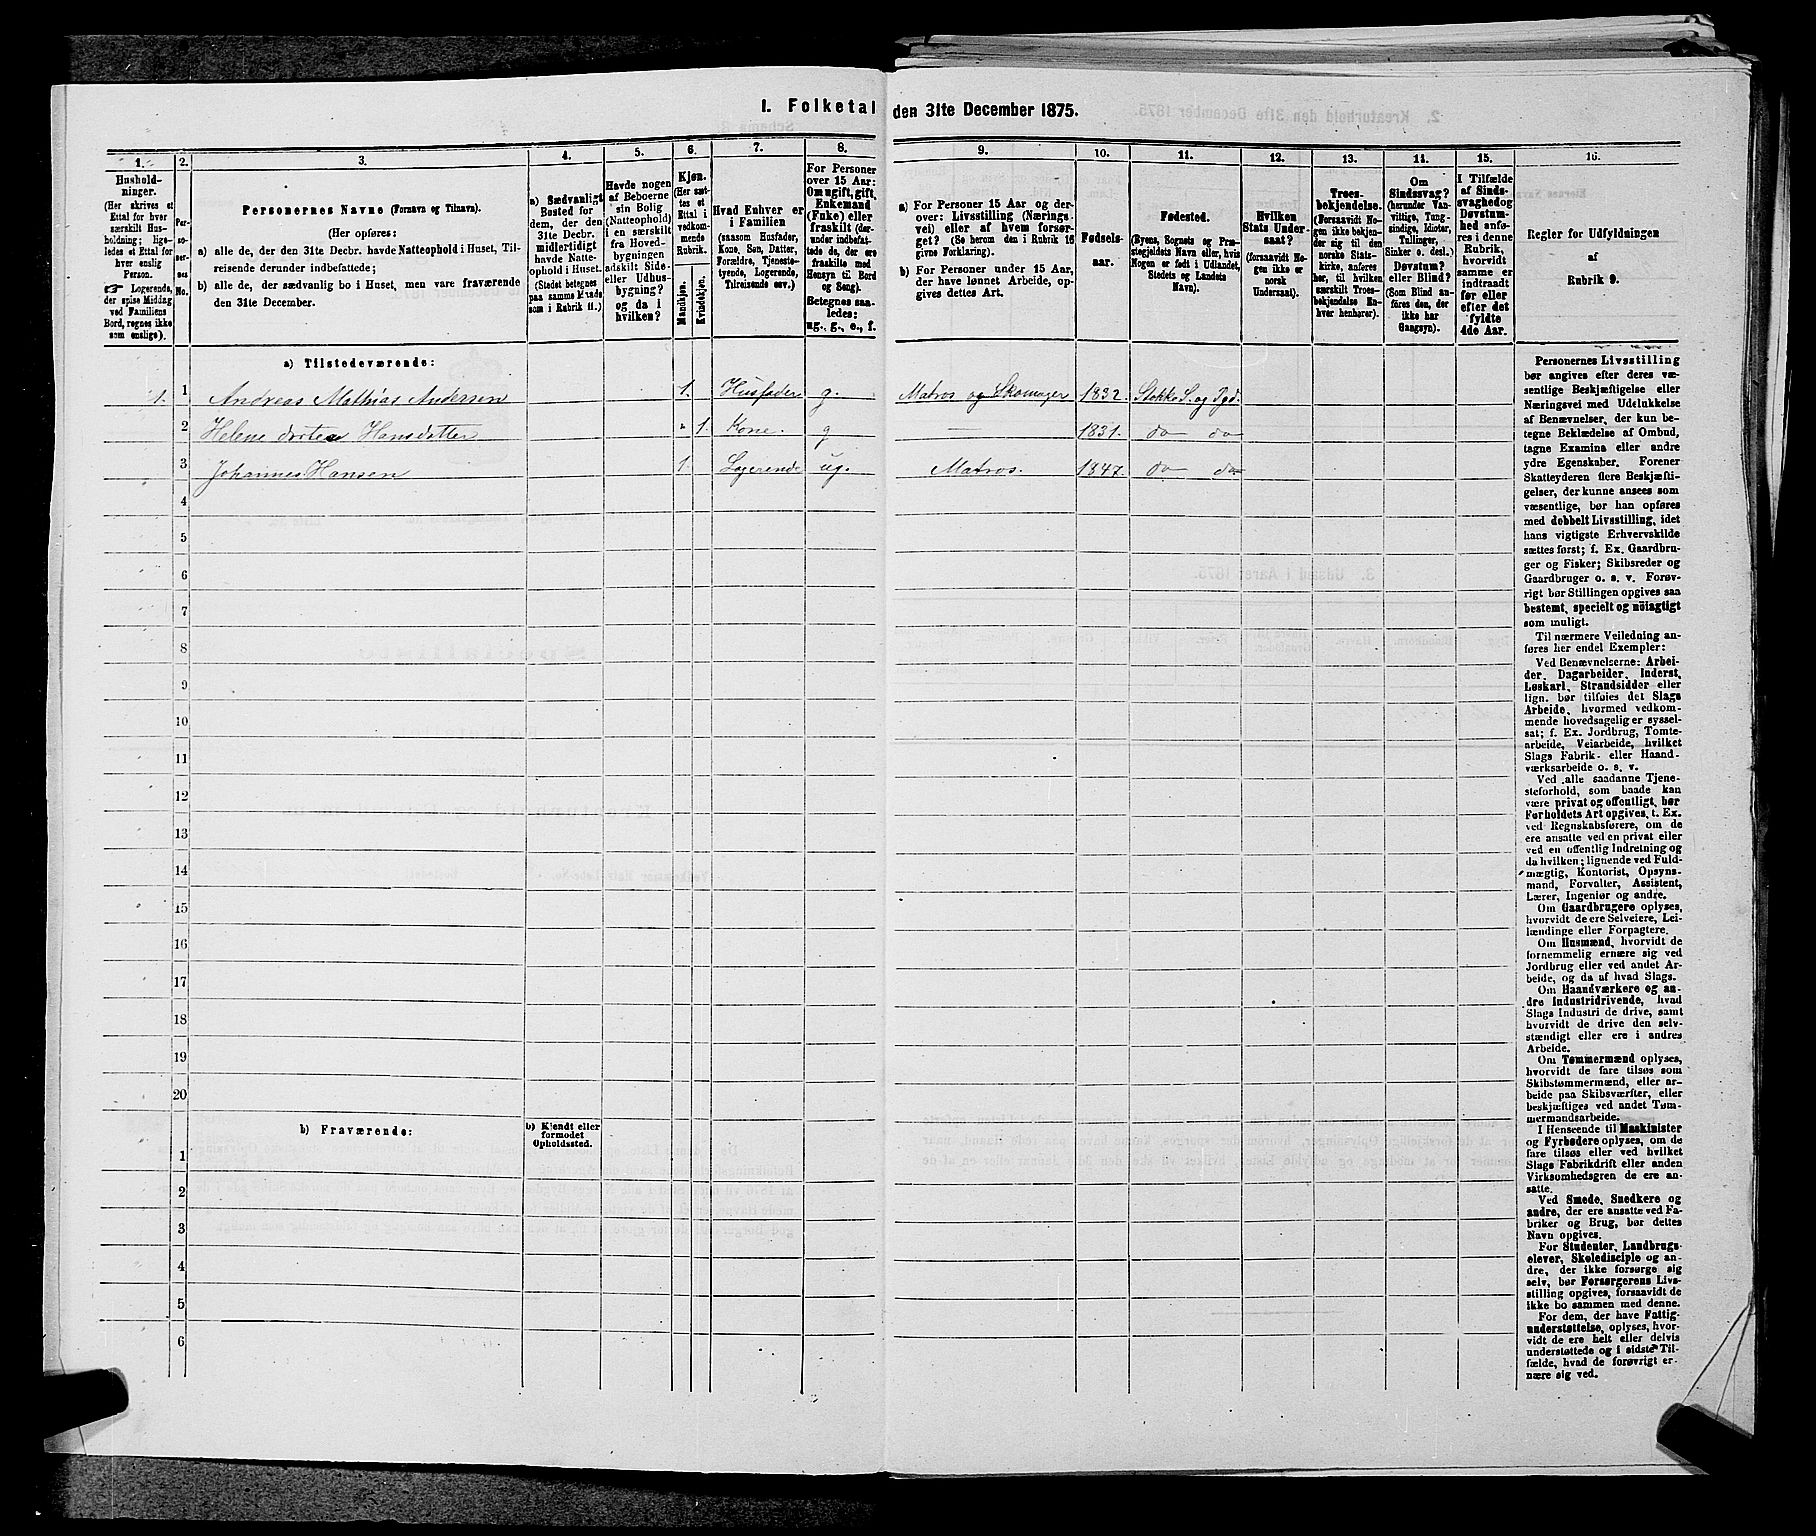 1. Folketal den 31te December 1875.
1.
2.
3.
4.
5.
6.
7.
8.
9.
10.
11.
12.
13.
14.
15.
16.
Hushold-
ninger.
(Her skrives et
Ettal for hver
særskilt Hus-
holdning; lige-
ledes et Ettal for
hver enslig
Person.
☞ Logerende,
der spise Middag
ved Familiens
Bord, regnes ikke
som enslige).
Per-
so-
ner-
nes
No.
Personernes Navne (Fornavn og Tilnavn).
(Her opføres:
a) alle de, der den 31te Decbr. havde Natteophold i Huset, Til-
reisende derunder indbefattede;
b) alle de, der sædvanlig bo i Huset, men vare fraværende
den 31te December.
a) Sædvanligt
Bosted for
dem, der den
31te Decbr.
midlertidigt
havde Natte-
ophold i Huset.
(Stedet betegnes
paa samme Maade
som i Rubrik 11.)
Havde nogen
af Beboerne
sin Bolig
(Natteophold)
i en særskilt
fra Hoved-
bygningen
adskilt Side-
eller Udhus-
bygning?
og da i
hvilken?
Kjøn.
(Her sæt-
tes et
Ettal i
vedkom-
mende
Rubrik.
Mandkjøn.
Kvindekjøn.
Hvad Enhver er
i Familien
(saasom Husfader,
Kone, Søn, Datter,
Forældre, Tjeneste-
tyende, Logerende,
Tilreisende osv.)
For Personer
over 15 Aar:
Om ugift, gift,
Enkemand
(Enke) eller
fraskilt (der-
under indbefat-
tede de, der ere
fraskilte med
Hensyn til Bord
og Seng).
Betegnes saa-
ledes:
ug., g., e., f.
a) For Personer 15 Aar og der-
over: Livsstilling (Nærings-
vei) eller af hvem forsør-
get? (Se herom den i Rubrik 16
givne Forklaring).
b) For Personer under 15 Aar,
der have lønnet Arbeide, op-
gives dettes Art.
Fødsels-
aar.
Fødested.
(Byens, Sognets og Præ-
stegjeldets Navn eller, hvis
Nogen er født i Udlandet,
Stedets og Landets
Navn).
Hvilken
Stats Under-
saat?
(forsaavidt No-
gen ikke er
norsk
Undersaat).
Troes-
bekjendelse.
(Forsaavidt No-
gen ikke bekjen-
der sig til den
norske Stats-
kirke, anføres
her, til hvilken
særskilt Troes-
bekjendelse En-
hver henhører).
Om
Sindssvag?
(herunder Van-
vittige, Tung-
sindige, Idioter,
Tullinger,
Sinker o. desl.)
Døvstum?
eller Blind?
(Som Blind an-
føres den, der
ikke har
Gangsyn).
I Tilfælde
af Sinds-
svaghed og
Døvstum-
hed anfø-
res i denne
Rubrik,
hvorvidt
samme er
indtraadt
før eller
efter det
fyldte
4de Aar.
Regler for Udfyldningen
af
Rubrik 9.
a) Tilstedeværende:
1. 1 Andreas Mathias Andersen 1. Husfader g. Matros og Skomager 1832 Stokke S. og Pgd.
2 Helene Dortea Hansdatter 1. Kone. g — 1831. do do
3 Johannes Hansen 1. Logerende ug. Matros. 1847. do do
4
5
6
7
8
9
10
11
12
13
14
15
16
17
18
19
20
b) Fraværende:
b) Kjendt eller
formodet
Opholdssted.
1
2
3
4
5
6
Personernes Livsstilling
bør angives efter deres væ-
sentlige Beskjæftigelse eller
Næringsvei med Udelukkelse
af Benævnelser, der kun be-
tegne Beklædelse af Ombud,
tagne Examina eller andre
ydre Egenskaber. Forener
Skatteyderen flere Beskjæfti-
gelser, der kunne ansees som
væsentlige, bør han opføres
med dobbelt Livsstilling, idet
hans vigtigste Erhvervskilde
sættes først; f. Ex. Gaardbru-
ger og Fisker; Skibsreder og
Gaardbruger o. s. v. Forøv-
rigt bør Stillingen opgives saa
bestemt, specielt og nöiagtigt
som muligt.
Til nærmere Veiledning an-
føres her endel Exempler:
Ved Benævnelserne: Arbei-
der, Dagarbeider, Inderst,
Løskarl, Strandsidder eller
lign. bør tilføies det Slags
Arbeide, hvormed vedkom-
mende hovedsagelig er syssel-
sat; f. Ex. Jordbrug, Tomte-
arbeide, Veiarbeide, hvilket
Slags Fabrik- eller Haand-
værksarbeide o. s. v.
Ved alle saadanne Tjene-
steforhold, som baade kan
være privat og offentligt, bør
Forholdets Art opgives, t. Ex.
ved Regnskabsførere, om de
ere ansatte ved en privat eller
ved en offentlig Indretning og
da hvilken; lignende ved Fuld-
mægtig, Kontorist, Opsyns-
mand, Forvalter, Assistent,
Lærer, Ingeniør og andre.
Om Gaardbrugere oplyses,
hvorvidt de ere Selveiere, Lei-
lændinge eller Forpagtere.
Om Husmænd, hvorvidt de
fornemmelig ernære sig ved
Jordbrug eller ved andet Ar-
beide, og da af hvad Slags.
Om Haandværkere og an-
dre Industridrivende, hvad
Slags Industri de drive, samt
hvorvidt de drive den selv-
stændigt eller ere i andres
Arbeide.
Om Tømmermænd oplyses,
hvorvidt de fare tilsøs som
Skibstømmermænd, eller ar-
beide paa Skibsværfter, eller
beskjæftiges ved andet Tøm-
mermandsarbeide.
I Henseende til Maskinister
og Fyrbødere oplyses, om de
fare tilsøs eller ved hvilket
Slags Fabrikdrift eller anden
Virksomhedsgren de ere an-
satte.
Ved Smede, Snedkere og
andre, der ere ansatte ved Fa-
briker og Brug, bør dettes
Navn opgives.
For Studenter, Landbrugs-
elever, Skoledisciple og an-
dre, der ikke forsørge sig
selv, bør Forsørgerens Livs-
stilling opgives, forsaavidt de
ikke bo sammen med denne.
For dem, der have Fattig-
understøttelse, oplyses, hvor-
vidt de ere helt eller delvis
understøttede og i sidste Til-
fælde, hvad de forøvrigt er-
nære sig ved.